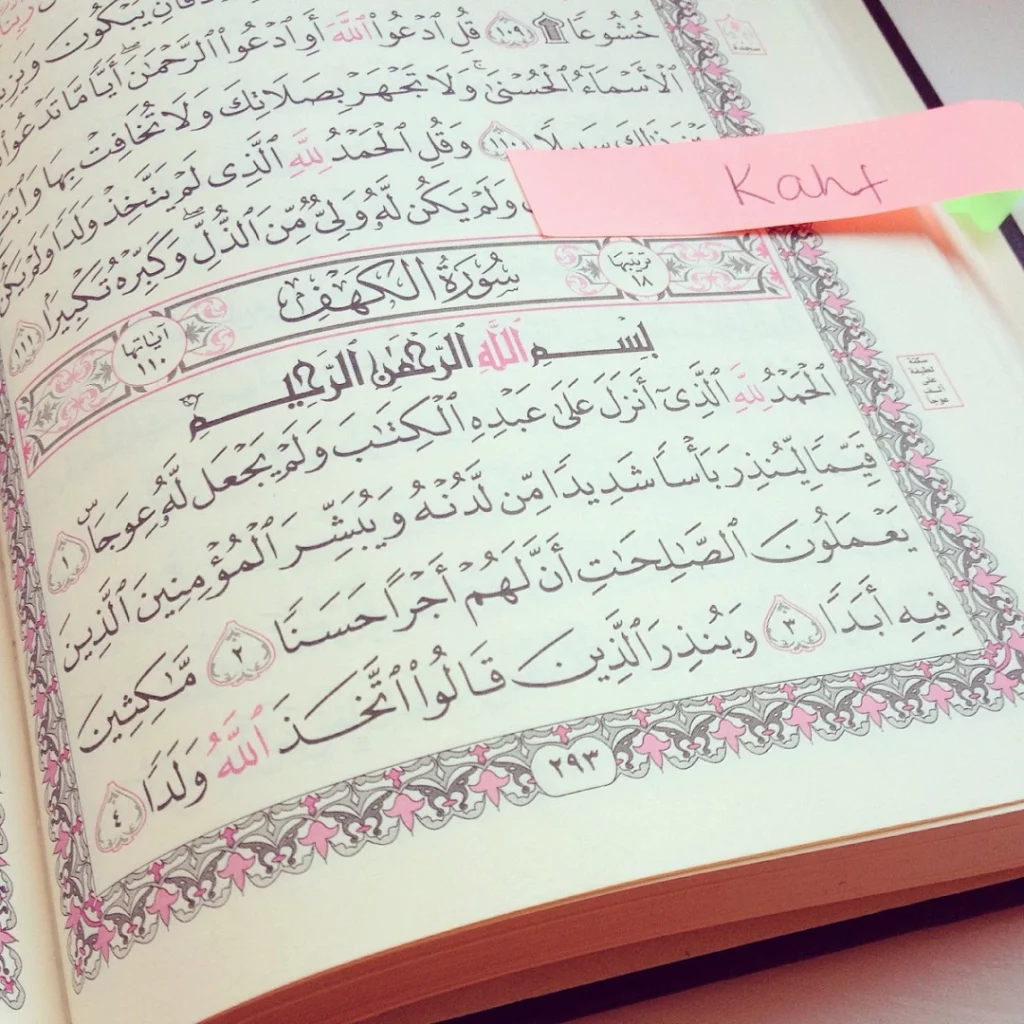 خُشُوعًا ۩ ١٠٩ قُلِ ٱدْعُوا۟ ٱللَّهَ أَوِ ٱدْعُوا۟ ٱلرَّحْمَٰنَ أَيًّا مَّا تَدْعُوا۟
ٱلْأَسْمَآءُ ٱلْحُسْنَىٰ وَلَا تَجْهَرْ بِصَلَاتِكَ وَلَا تُخَافِتْ بِهَا وَٱبْتَغِ
ذَٰلِكَ سَبِيلًا ١١٠ وَقُلِ ٱلْحَمْدُ لِلَّهِ ٱلَّذِى لَمْ يَتَّخِذْ وَلَدًا وَلَمْ يَكُن
وَلَمْ يَكُن لَّهُۥ وَلِىٌّ مِّنَ ٱلذُّلِّ وَكَبِّرْهُ تَكْبِيرًا ١١١
Kahf
ترتيبها ١٨ سُورَةُ الكَهْفِ آياتها ١١٠
بِسْمِ ٱللَّهِ ٱلرَّحْمَٰنِ ٱلرَّحِيمِ
ٱلْحَمْدُ لِلَّهِ ٱلَّذِىٓ أَنزَلَ عَلَىٰ عَبْدِهِ ٱلْكِتَٰبَ وَلَمْ يَجْعَل لَّهُۥ عِوَجَا ۜ ١
قَيِّمًا لِّيُنذِرَ بَأْسًا شَدِيدًا مِّن لَّدُنْهُ وَيُبَشِّرَ ٱلْمُؤْمِنِينَ ٱلَّذِينَ
يَعْمَلُونَ ٱلصَّٰلِحَٰتِ أَنَّ لَهُمْ أَجْرًا حَسَنًا ٢ مَّٰكِثِينَ
فِيهِ أَبَدًا ٣ وَيُنذِرَ ٱلَّذِينَ قَالُوا۟ ٱتَّخَذَ ٱللَّهُ وَلَدًا ٤
٢٩٣